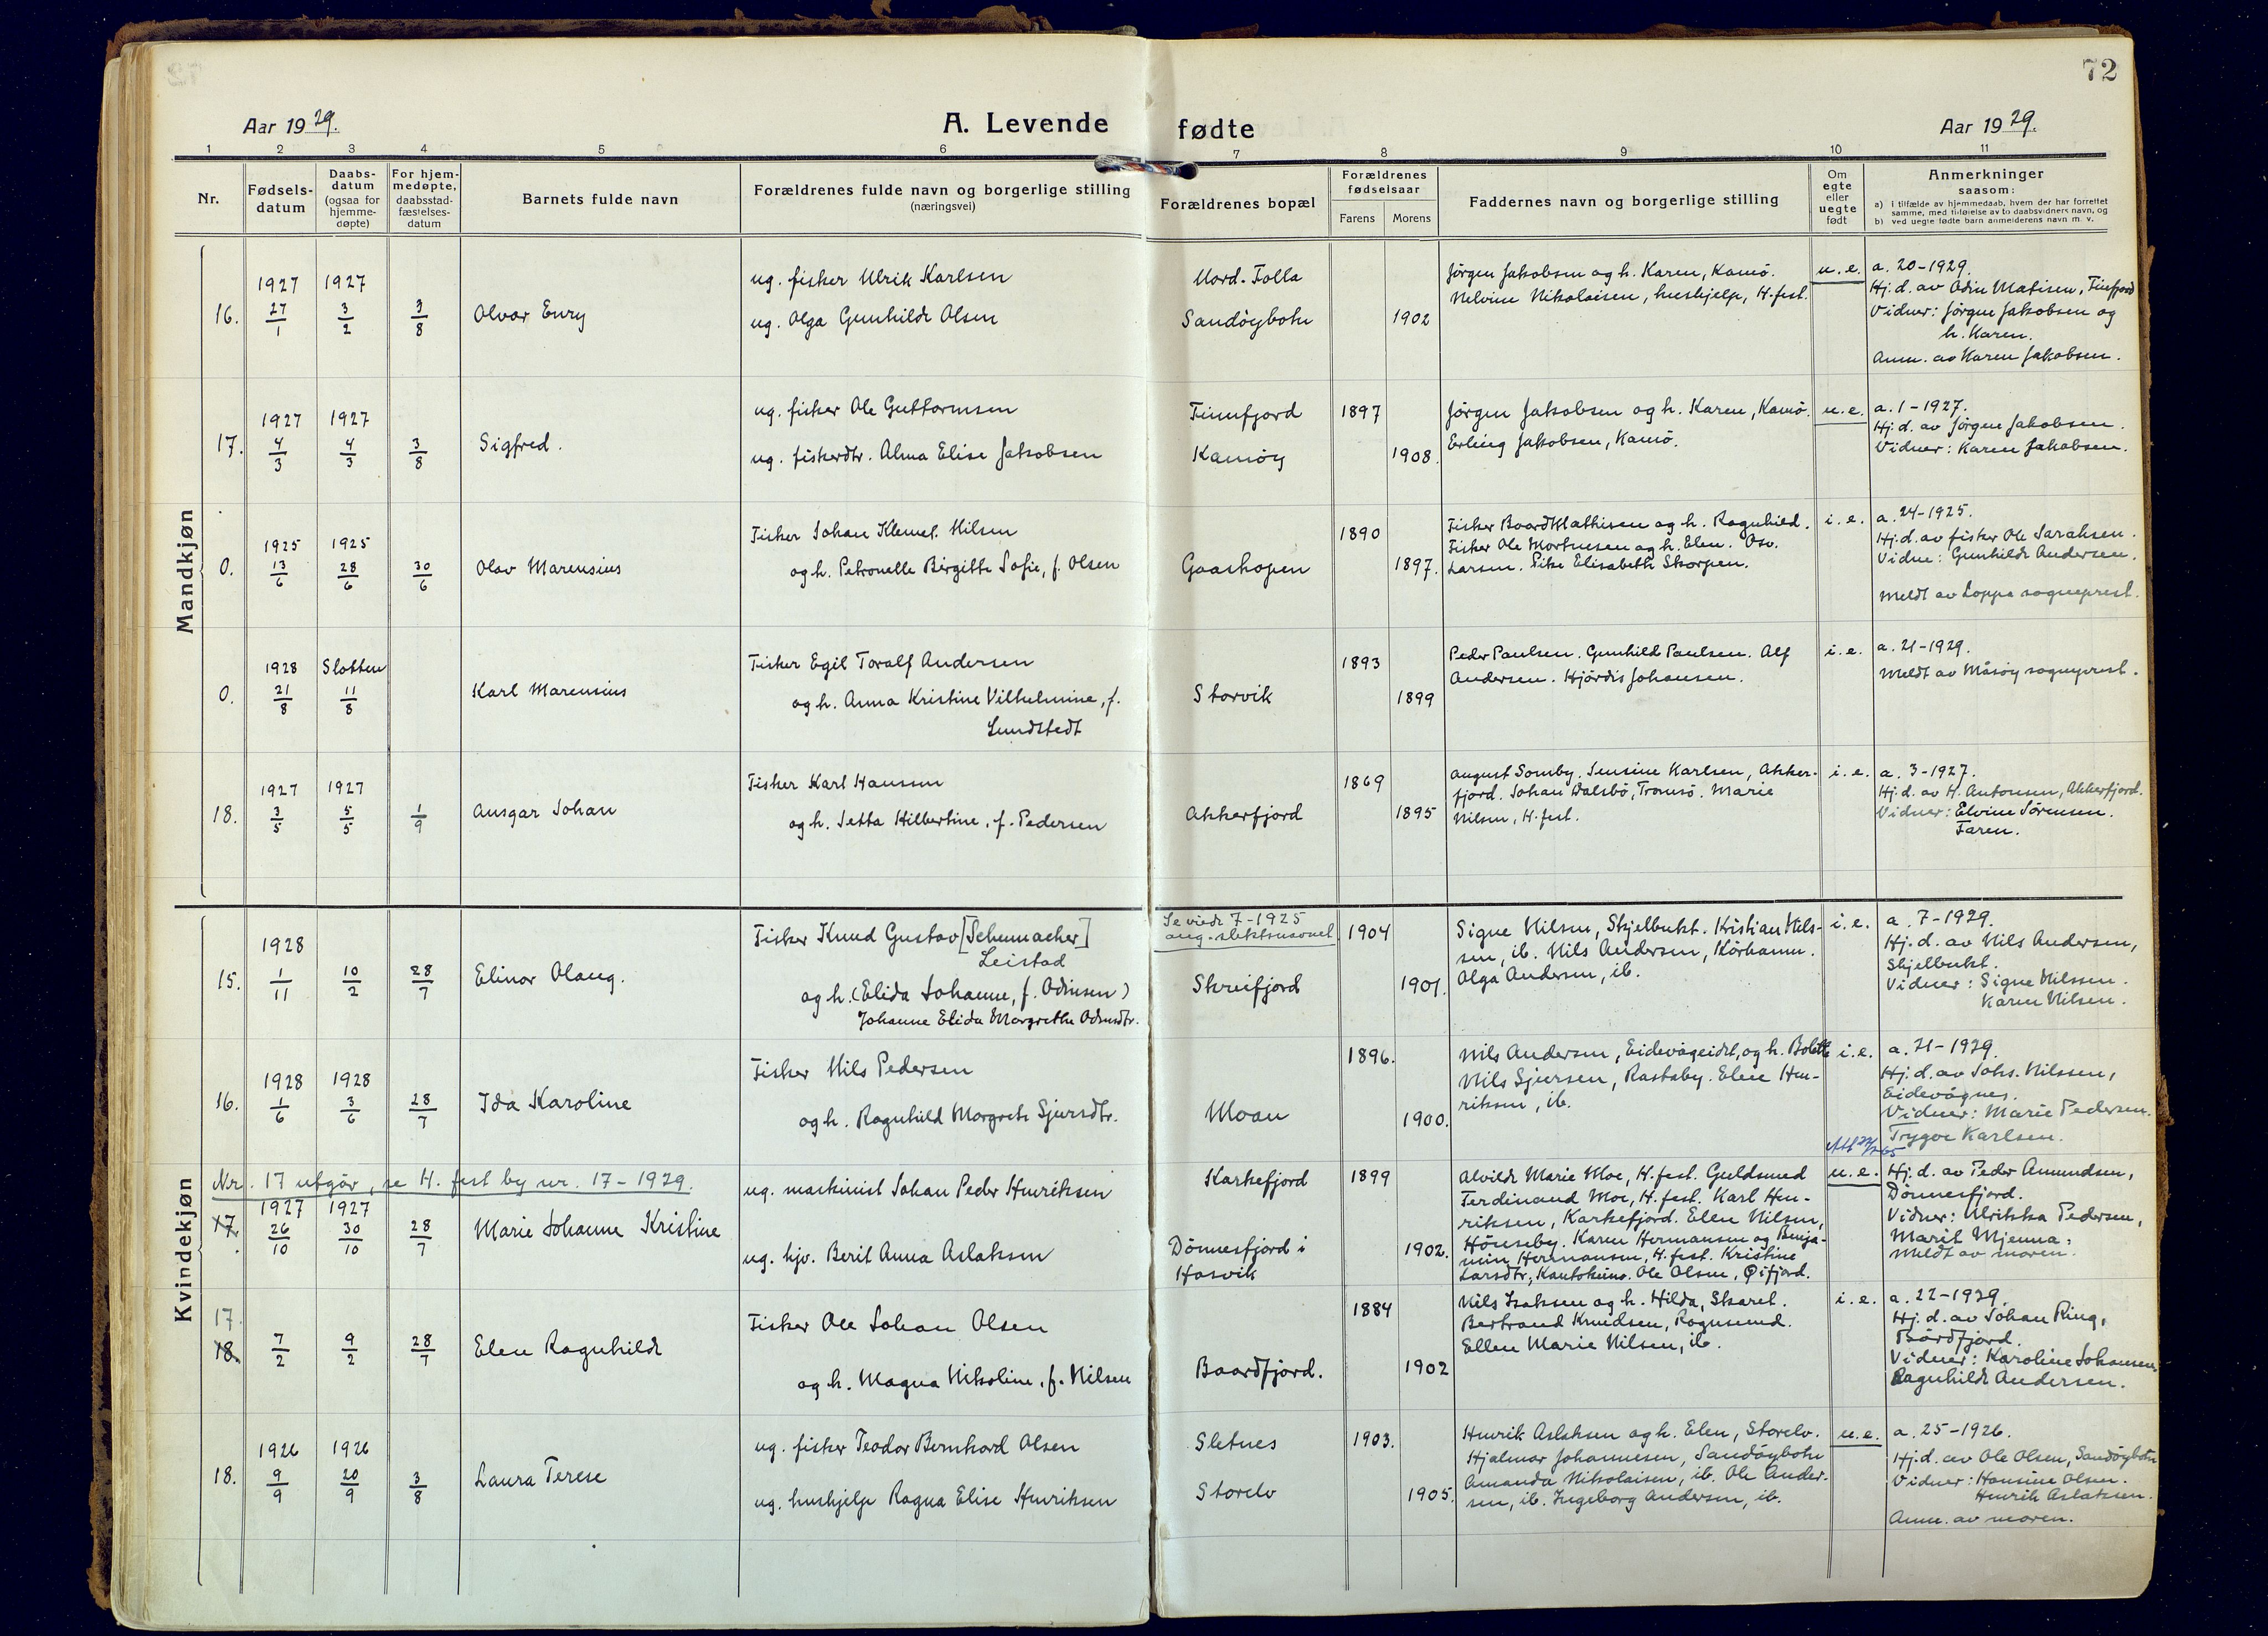 72
Aar 1929.
A. Levende fødte
Aar 1929.
1 2 3 4 5 6 7 8 9 10 11
Nr.
Fødsels-
datum
Daabs-
datum
(ogsaa for
hjemme-
døpte)
For hjem-
medøpte,
daabsstad-
fæstelses-
datum
Barnets fulde navn
Forældrenes fulde navn og borgerlige stilling
(næringsvei)
Forældrenes bopæl
Forældrenes
fødselsaar
Farens Morens
Faddernes navn og borgerlige stilling
Om
egte
eller
uegte
født
Anmerkninger
saasom:
a) i tilfælde av hjemmedaab, hvem der har forrettet
samme, med tilføielse av to daabsvidners navn, og
b) ved uegte fødte barn anmelderens navn m. v.
Mandkjøn
16.
1927
27/1
1927
3/2
3/8
Olvar Enry
ug. fisker Ulrik Karlsen
ug. Olga Gunhild Olsen
Nord-Folla
Sandøybotn
1902
Jørgen Jakobsen og h. Karen, Kamø.
Nelvine Nikolaisen, hushjelp, H.fest.
u. e.
a. 20-1929.
Hj. d. av Odin Matisen, Finfjord
Vidner: Jørgen Jakobsen og
h. Karen.
Anm. av Karen Jakobsen.
17.
1927
4/3
1927
4/3
3/8
Sigfred.
ug. fisker Ole Guttormsen
ug. fiskerdtr. Alma Elise Jakobsen
Finnfjord
Kamøy
1897
1908.
Jørgen Jakobsen og h. Karen, Kamø.
Erling Jakobsen, Kamø.
u. e.
a. 1-1927.
Hj. d. av Jørgen Jakobsen.
Vidner: Karen Jakobsen.
0.
1925
13/6
1925
28/6
30/6
Olav Marensius
Fisker Johan Klemet Nilsen
og h. Petronelle Birgitte Sofie, f. Olsen
Gaashopen
1890
1897.
Fisker Baard Mathisen og h. Ragnhild.
Fisker Ole Mortensen og h. Elen. Osv.
Larsen. Pike Elisabeth Skorpen.
i. e.
a. 24-1925.
Hj. d. av fisker Ole Sarahsen.
Vidne: Gunhild Andersen.
Meldt av Loppa sogneprest.
0.
1928
21/8
Slotten
11/8
Karl Marensius
Fisker Egil Toralf Andersen
og h. Anna Kristine Vilhelmine, f.
Lundstedt
Storvik
1893
1899
Peder Paulsen. Gunhild Paulsen. Alf
Andersen. Hjørdis Johansen.
i. e.
a. 21-1929.
Meldt av Måsøy sogneprest.
18.
1927
3/5
1927
5/5
1/9
Ansgar Johan
Fisker Karl Hansen
og h. Jetta Hilbertine, f. Pedersen
Akkerfjord
1869
1895
August Somby. Jensine Karlsen, Akker-
fjord. Johan Dalsbø, Tromsø. Marie
Nilsen, H.fest.
i. e.
a. 3-1927.
Hj. d. av H. Antonsen, Akkerfjord.
Vidner: Elvine Sørensen.
Faren.
Kvindekjøn
15.
1928
1/11
10/2
28/7
Elinor Olaug.
Fisker Knud Gustav [Schumacher]
Leistad
og h. (Elida Johanne, f. Odinsen)
Johanne Elida Margrethe Odinsdtr.
Se viede 7-1925
ang. slektsnavnet.
Skreifjord
1904
1901.
Signe Nilsen, Skjelbukt. Kristian Nils-
sen, ib. Nils Andersen, Kårhamn.
Olga Andersen, ib.
i. e.
a. 7-1929.
Hj. d. av Nils Andersen,
Skjelbukt.
Vidner: Signe Nilssen.
Karen Nilsen.
16.
1928
1/6
1928
3/6
28/7
Ida Karoline
Fisker Nils Pedersen
og h. Ragnhild Margrete Sjursdtr.
Moan
1896.
1900.
Nils Andersen, Eidevågeidet, og h. Bolette
Nils Sjursen, Rastaby. Elen Hen-
riksen, ib.
i. e.
a. 21-1929.
Hj. d. av Johs. Nilssen,
Eidevågnes.
Vidner: Marie Pedersen.
Trygve Karlsen.
Nr. 17 utgår, se H. fest by nr. 17-1929.
17.
1927
26/10
1927
30/10
28/7
Marie Johanne Kristine
ug. maskinist Johan Peder Henriksen
ug. hjv. Berit Anna Aslaksen
Karkefjord
Dønnesfjord i
Hasvik
1899
1902.
Alvild Marie Moe, H.fest. Guldsmed
Ferdinand Moe, H.fest. Karl Hen-
riksen, Karkefjord. Elen Nilsen,
Hønseby. Karen Hermansen og Benja-
min Hermansen, H.fest. Kristine
Larsdtr, Kautokeino. Ole Olsen, Øifjord.
u. e.
Hj. d. av Peder Amundsen,
Dønnesfjord.
Vidner: Ulrikka Pedersen,
Marit Mjenna.
Meldt av moren.
17.
18.
7/2
9/2
28/7
Elen Ragnhild
Fisker Ole Johan Olsen
og h. Magna Nikoline, f. Nilsen
Baardfjord.
1884
1902
Nils Isaksen og h. Hilda, Skaret.
Bertrand Knudsen, Rognsund.
Ellen Marie Nilsen, ib.
i. e.
a. 22-1929.
Hj. d. av Johan Ring,
Bårdfjord.
Vidner: Karoline Johansen,
Ragnhild Andersen.
18.
1926
9/9
1926
20/9
3/8
Laura Terese
ug. fisker Teodor Bernhard Olsen
ug. hushjelp Ragna Elise Henriksen
Sletnes
Storelv
1903.
1905.
Henrik Aslaksen og h. Elen, Storelv.
Hjalmar Johannesen, Sandøybotn
Amanda Nikolaisen, ib. Ole Ander-
sen, ib. Ingeborg Andersen, ib.
u. e.
a. 25-1926.
Hj. d. av Ole Olsen, Sandøybotn
Vidner: Hansine Olsen.
Henrik Aslaksen.
Anm. av moren.